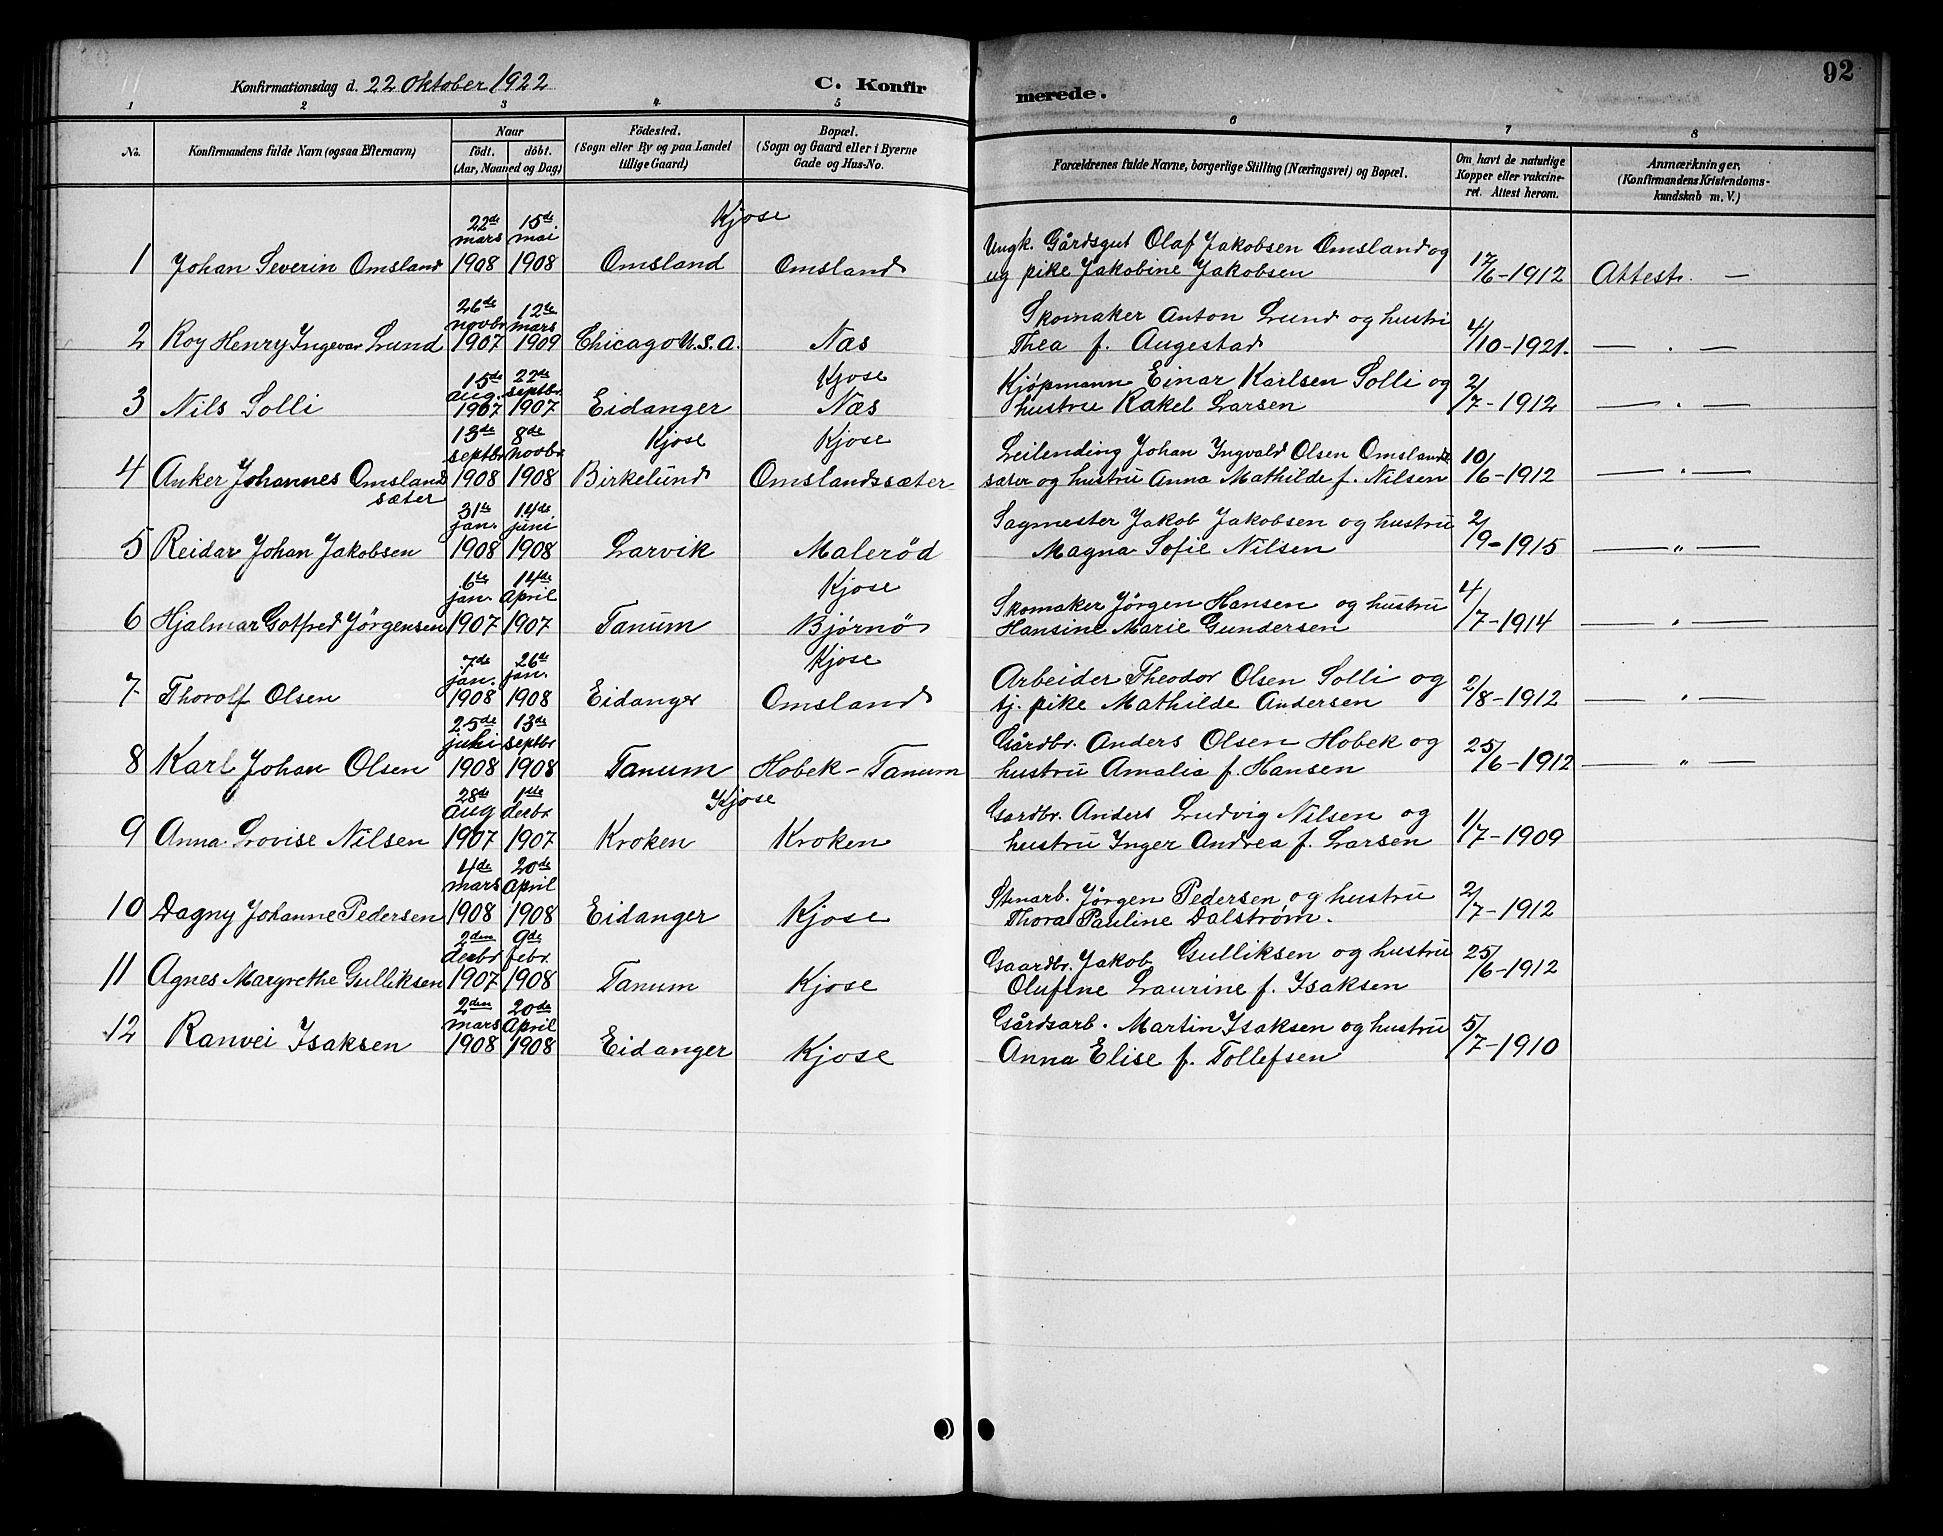 92
Konfirmationsdag d. 22 oktober 1922 C. Konfirmerede.
1 2 3 4 5 6 7 8
No. Konfirmandens fulde Navn (ogsaa Efternavn) Naar födt. döbt. (Aar, Maaned og Dag) Födested. (Sogn eller By og paa Landet tillige Gaard) Bopæl. (Sogn og Gaard eller i Byerne Gade og Hus-No. Forældrenes fulde Navne, borgerlige Stilling (Næringsvei) og Bopæl. Om havt de naturlige Kopper eller vakcineret. Attest herom. Anmærkninger, (Konfirmandens Kristendomskundskab m. V.)
22de mars 15de mai Kjose
1 Johan Severin Omsland 1908 1908 Omsland Omsland Ungk. Gårdsgut Olaf Jakobsen Omsland og
ug pike Jakobine Jakobsen 17/6-1912 Attest. —
26de novbr 12te mars
2 Roy Henry Ingevar Lund 1907 1909 Chicago U.S.A. Næs Skomaker Anton Lund og hustru
Thea f. Augestad 4/10-1921. — . —
15de aug. 22de septbr. Kjose
3 Nils Solli 1907 1907 Eidanger Næs Kjøpmann Einar Karlsen Solli og
hustru Rakel Larsen 2/7-1912 — . —
13de septbr 8de novbr. Kjose Kjose
4 Anker Johannes Omsland
sæter 1908 1908 Birkelund Omslandssæter Leilending Johan Ingvald Olsen Omslands
sæter og hustru Anna Mathilde f. Nilsen 10/6-1912 — " —
31te jan. 14de juni
5 Reidar Johan Jakobsen 1908 1908 Larvik Malerød Sagmester Jakob Jakobsen og hustru
Magna Sofie Nilsen 2/9-1915 — " —
6te jan. 14de April Kjose
6 Hjalmar Gotfred Jörgensen 1907 1907 Tanum Bjørnø Skomaker Jörgen Hansen og hustru
Hansine Marie Gundersen 4/7-1914 — " —
7de jan. 26de jan. Kjose
7 Thorolf Olsen 1908 1908 Eidanger Omsland Arbeider Theodor Olsen Solli og
tj. pike Mathilde Andersen 2/8-1912 — " —
25de 13de septbr
8 Karl Johan Olsen 1908 1908 Tanum Hobek-Tanum Gårdbr. Anders Olsen Hobek og
hustru Amalia f. Hansen 25/6-1912 — " —
28de aug 1ste desbr Kjose
9 Anna Lovise Nilsen 1907 1907 Kroken Kroken Gardbr. Anders Ludvig Nilsen og
hustru Inger Andrea f. Larsen 1/7-1909
4de mars 20de April
10 Dagny Johanne Pedersen 1908 1908 Eidanger Kjose Stenarb. Jørgen Pedersen og hustru
Thora Pauline Dalstrøm. 2/7-1912
2den desbr 9de febr.
11 Agnes Margrethe Gulliksen 1907 1908 Tanum Kjose Gaardbr. Jakob Gulliksen og hustru
Olufine Laurine f. Isaksen 25/6-1912
2den mars 20de April
12 Ranvei Isaksen 1908 1908 Eidanger Kjose Gårdsarb. Martin Isaksen og hustru
Anna Elise f. Tollefsen 5/7-1910